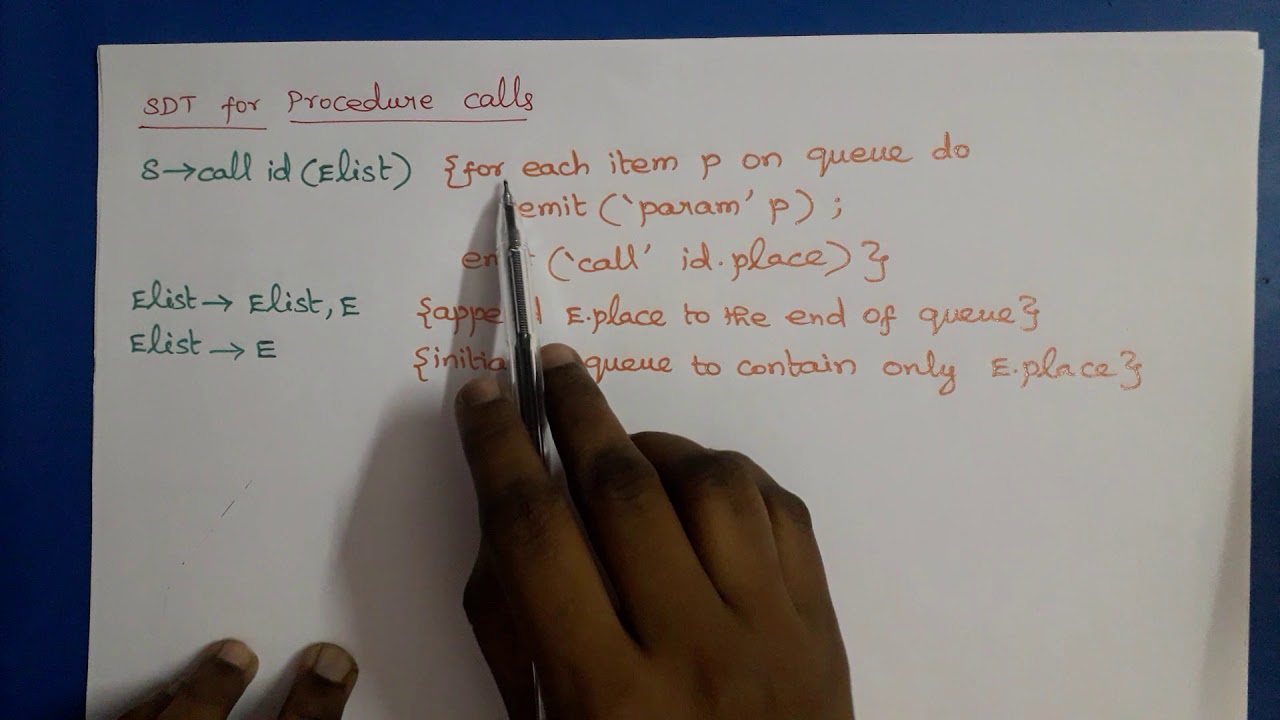 SDT for Procedure calls
S→call id (Elist) {for each item p on queue do
emit (‘param’ p) ;
(‘call’ id.place) }
Elist → Elist, E { E.place to the end of queue}
Elist → E { queue to contain only E.place}